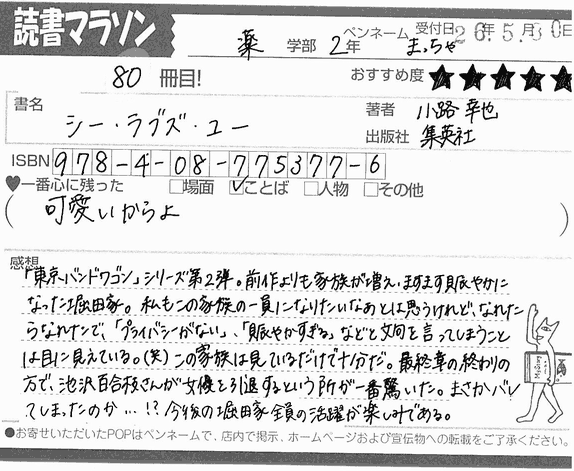 読書マラソン
薬 学部 2年 ペンネーム まっちゃ 受付日 26年5.月30日
80 冊目! おすすめ度 ★★★★★
書名 シー・ラブズ・ユー
著者 小路幸也
出版社 集英社
ISBN 978-4-08-775377-6
♥一番心に残った □場面 ☑ことば □人物 □その他
( 可愛いからよ )
感想
「東京バンドワゴン」シリーズ第2弾。前作よりも家族が増え、ますます賑やかに
なった堀田家。私もこの家族の一員になりたいなあとは思うけれど、なれた
らなれたで、「プライバシーがない」、「賑やかすぎる」などと文句を言ってしまうこと
は目に見えている。(笑)この家族は見ているだけで十分だ。最終章の終わりの
方で、池沢百合枝さんが女優を引退するという所が一番驚いた。まさかバレ
てしまったのか…!?今後の堀田家全員の活躍が楽しみである。
●お寄せいただいたPOPはペンネームで、店内で掲示、ホームページおよび宣伝物への転載をご了承ください。